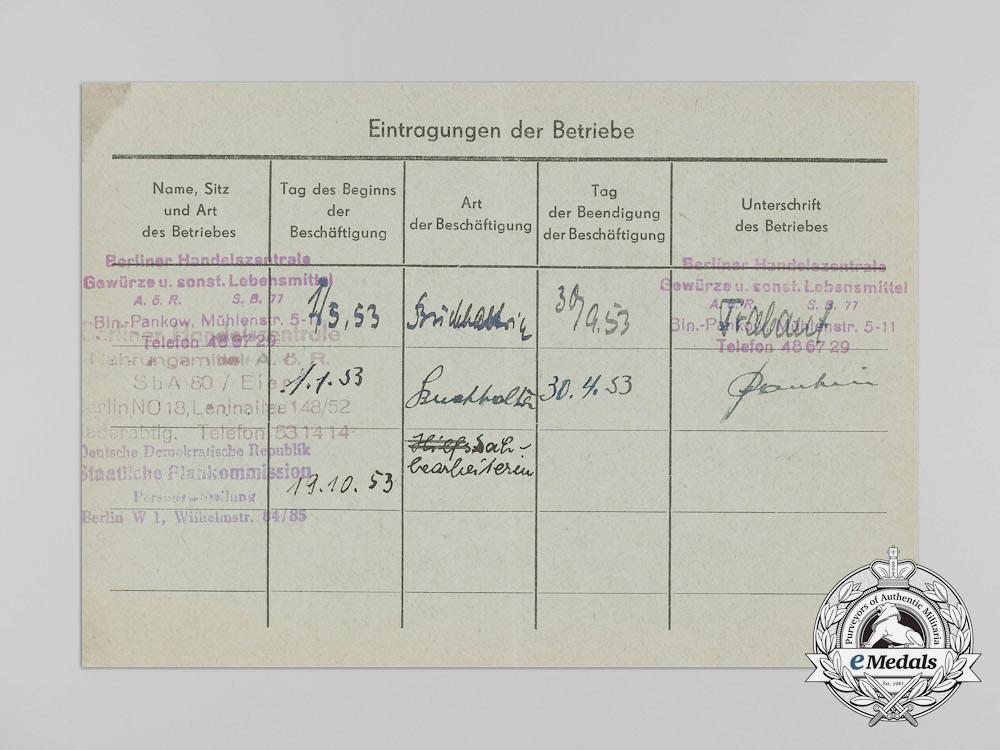 Eintragungen der Betriebe
Name, Sitz
und Art
des Betriebes
Tag des Beginns
der
Beschäftigung
Art
der Beschäftigung
Tag
der Beendigung
der Beschäftigung
Unterschrift
des Betriebes
Berliner Handelszentrale
Gewürze u. sonst. Lebensmittel
A. ö. R. S. B. 77
Bln.-Pankow, Mühlenstr. 5-11
Telefon 48 67 29
1/5.53
Buchhalterin
30/9.53
Berliner Handelszentrale
Gewürze u. sonst. Lebensmittel
A. ö. R. S. B. 77
Bln.-Pankow, Mühlenstr. 5-11
Telefon 48 67 29
Berliner Handelszentrale
Nahrungsmittel A. ö. R.
SbA 80 / Eier
Berlin NO 18, Leninallee 148/52
Kaderabtlg. Telefon 53 14 14
1.1.53
Buchhalterin
30.4.53
Deutsche Demokratische Republik
Staatliche Plankommission
Personalabteilung
Berlin W 1, Wilhelmstr. 84/85
19.10.53
Hilfssach-
bearbeiterin
Purveyors of Authentic Militaria
eMedals
Est. 1981